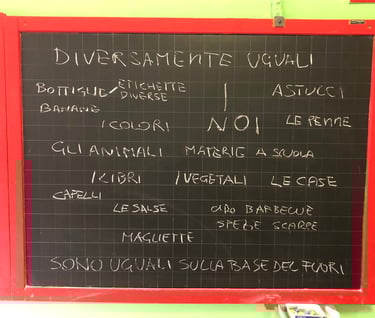 DIVERSAMENTE UGUALI
BOTTIGLIE/ ETICHETTE DIVERSE
ASTUCCI
BANANE
I COLORI
NOI
LE PENNE
GLI ANIMALI MATERIE A SCUOLA
I LIBRI I VEGETALI LE CASE
CAPELLI
LE SALSE BARBECUE
SCARPE
MAGLIETTE
SONO UGUALI SULLA BASE DEL FUORI